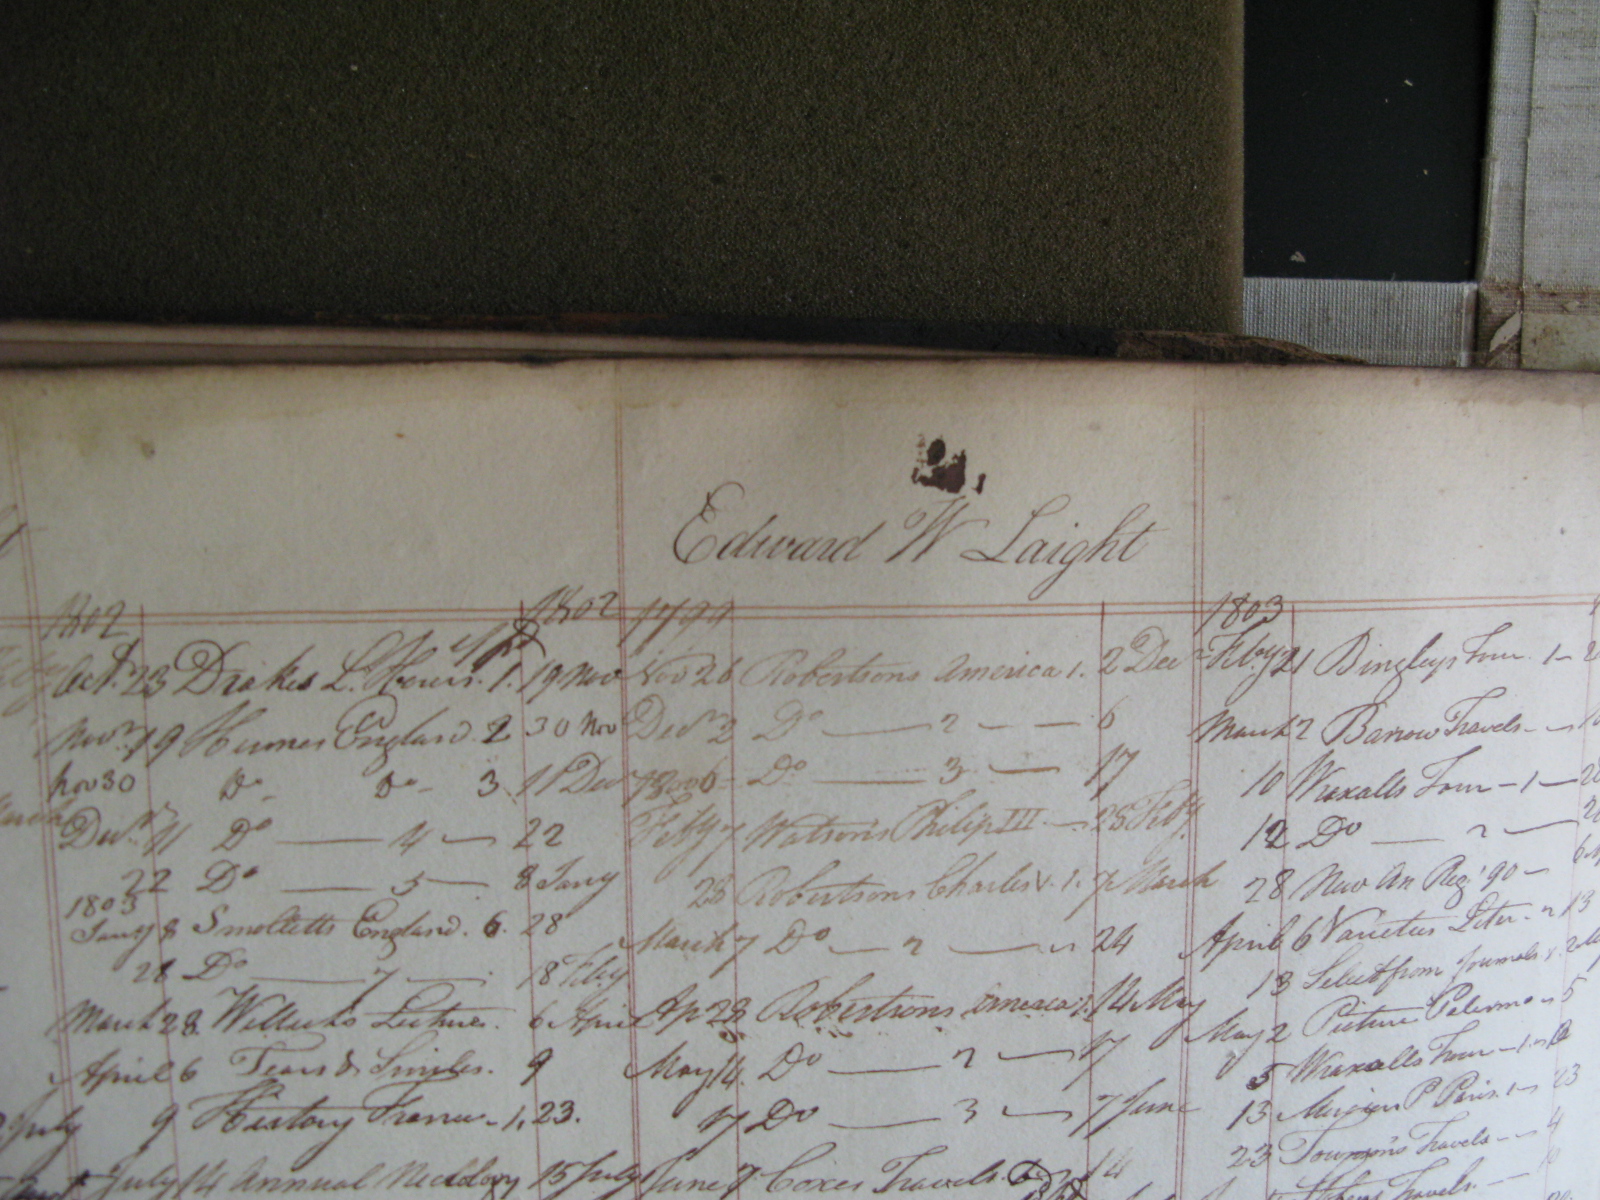 Edward W Laight
1802
Oct. 23 Drakes L. 1. 19 Nov
Novr. 19 Humes England. 2 30 Nov
Nov 30 Do Do 3 11 Dec
Decr. 11 Do 4 22
22 Do 5 8 Jany
1803
Jany 8 Smolletts England. 6. 28
28 Do 7 18 Feby
March 28. Lectures. 6 April
April 6 Tears & Smiles. 9
9 History France 1, 23.
July 14 Annual 15 July
1802
1799
Nov 26 Robertsons America 1. 2 Dec
Decr 2 Do 2 6
Do 3 17
Feby 7 Watsons Philip III 28 Feby
28 Robertsons Charles V. 1. 7 March
March 7 Do 2 24
Ap 28 Robertsons America 1. 14 May
May 14. Do 2 17
17 Do 3 7 June
June 7 Coxes Travels. 14
1803
Feby 21 Bingleys Tour. 1
March 2 Barrow Travels
10 Wraxalls Tour 1
12 Do 2
28 New An Reg. '90
April 6 Varieties Liter. 2 13
13 Select from Journals.
May 2 Picture Palermo 5
5 Wraxalls Tour 1
13 Mercier P Paris. 1 23
23 Travels 4
Travels.
July